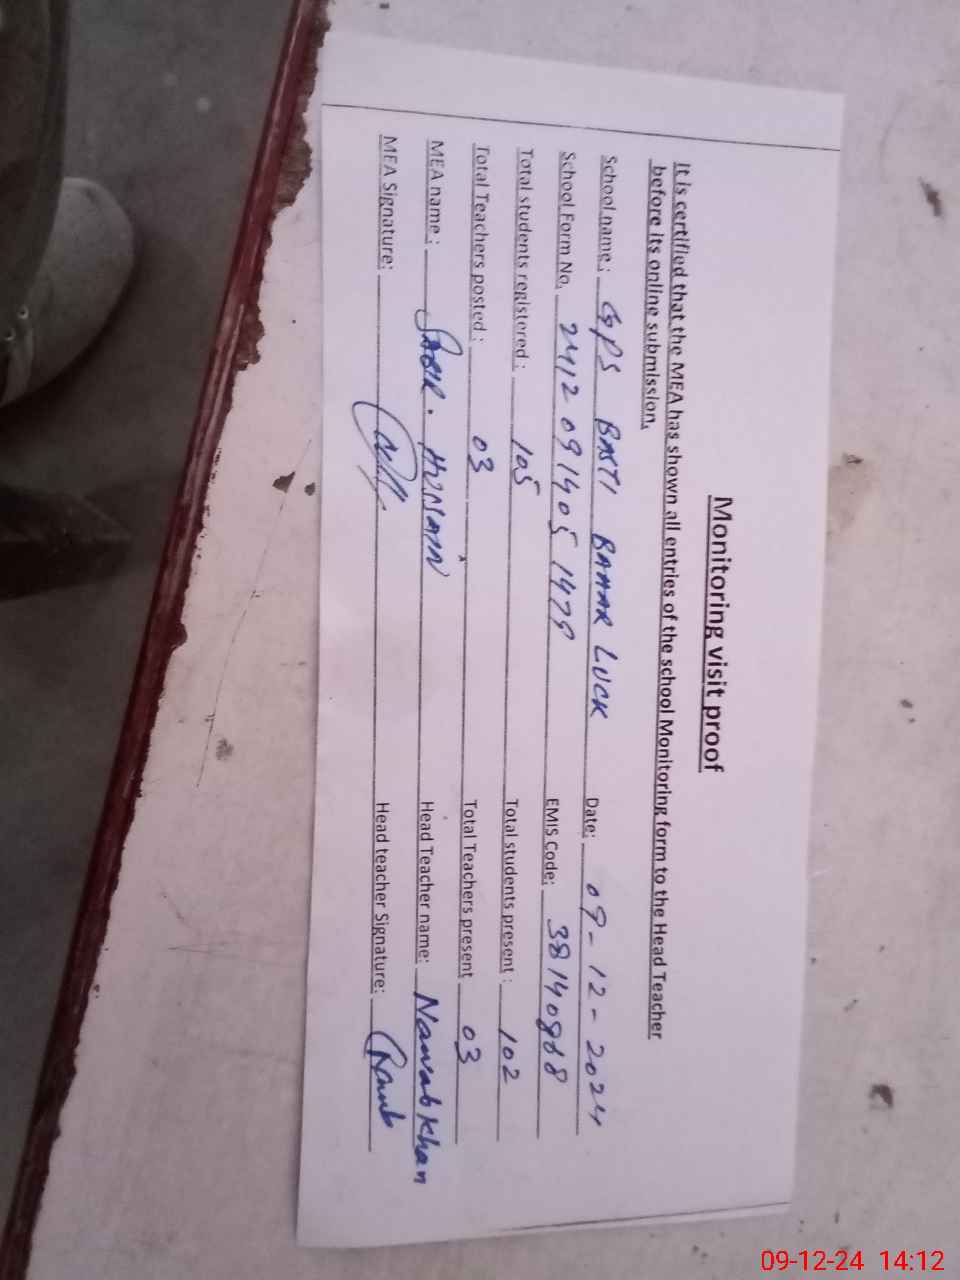 Monitoring visit proof
It is certified that the MEA has shown all entries of the school Monitoring form to the Head Teacher
before its online submission.
School name: GPS BASTI BAHAR LUCK Date: 09-12-2024
School Form No. 24120914051479 EMIS Code: 38140988
Total students registered: 105 Total students present: 102
Total Teachers posted: 03 Total Teachers present 03
MEA name: SABIR. HUSSAIN Head Teacher name: Nawab Khan
MEA Signature: Head teacher Signature:
09-12-24 14:12